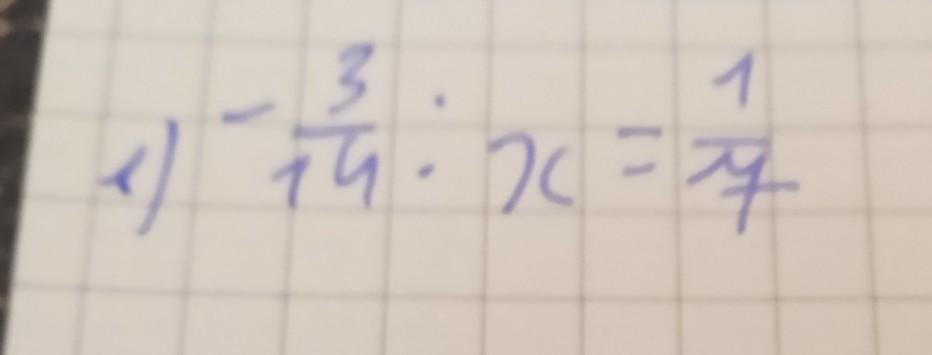 1) -3/14 : x = 1/7